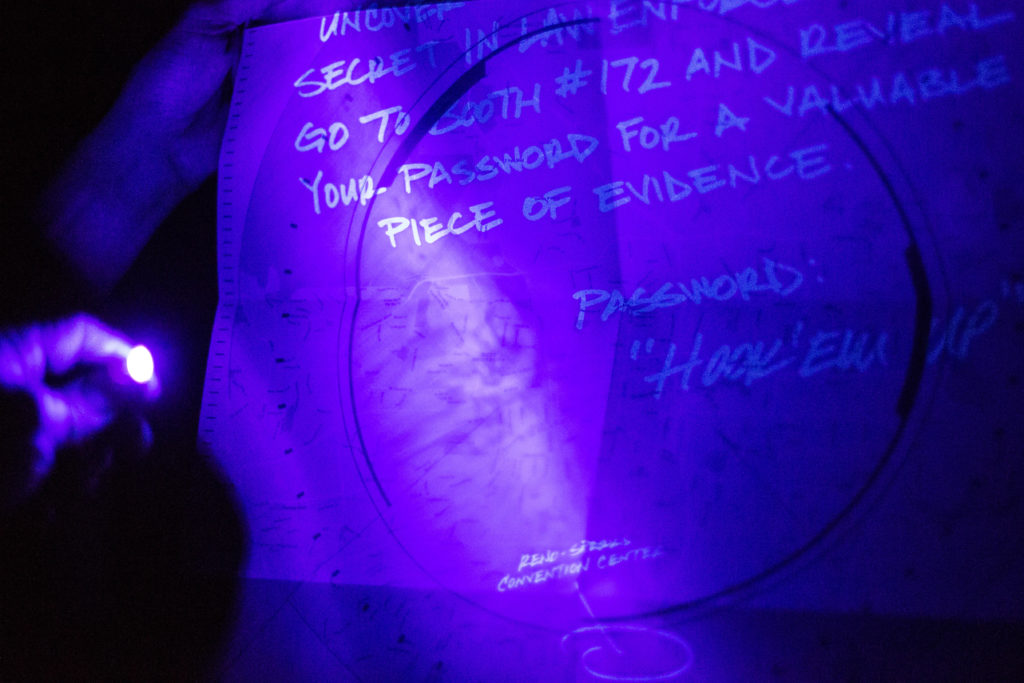 UNCOVER
SECRET IN LAW ENFORCE
GO TO BOOTH #172 AND REVEAL
YOUR PASSWORD FOR A VALUABLE
PIECE OF EVIDENCE.
PASSWORD:
"HOOK 'EM UP"
RENO-SPARKS
CONVENTION CENTER